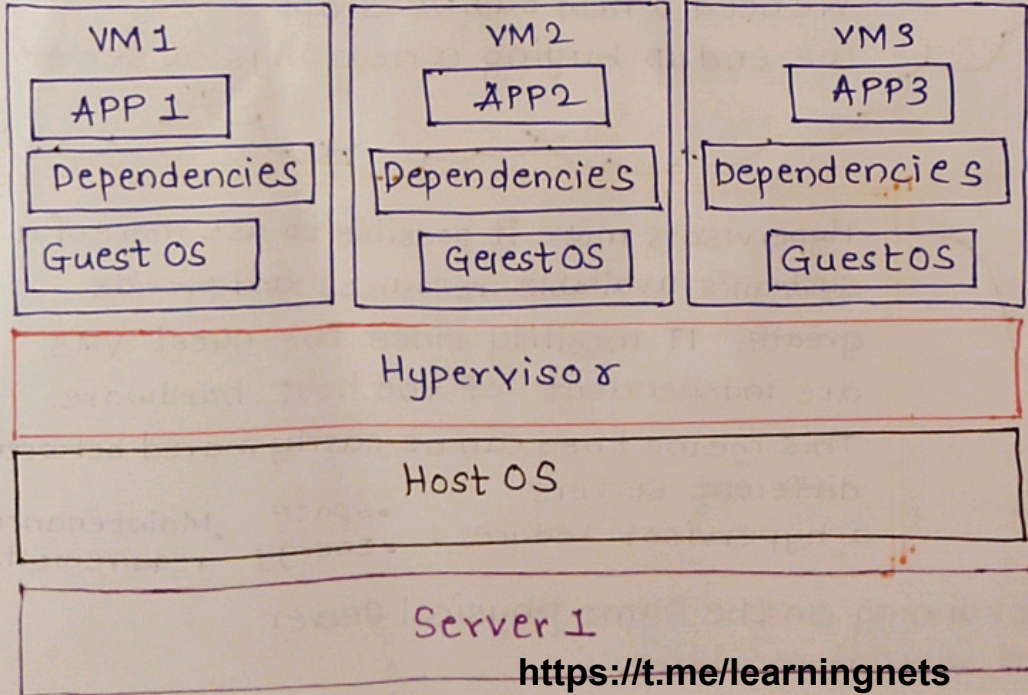 VM 1
APP 1
Dependencies
Guest OS
VM 2
APP2
Dependencies
Gerest OS
VM3
APP3
Dependencies
Guest OS
Hypervisor
Host OS
Server 1
https://t.me/learningnets